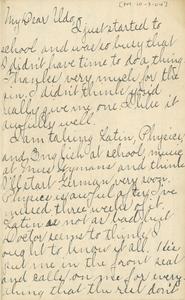 (PM 10-3-04)
My Dear Udo,
I just started to
school and was so busy that
I didn't have time to do a thing
Thanks very much for the
pin. I didn't think you'd
really give me one. I like it
awfully well.
I am taking Latin, Physics
and English at school, music
at Miss Hymans and think
I'll start German very soon.
Physics is awful after I've
missed three weeks of it.
Latin is not as bad, but
Doctor seems to think I
ought to know it all. He's
put me in the front seat
and calls on me for every
thing that the rest don't